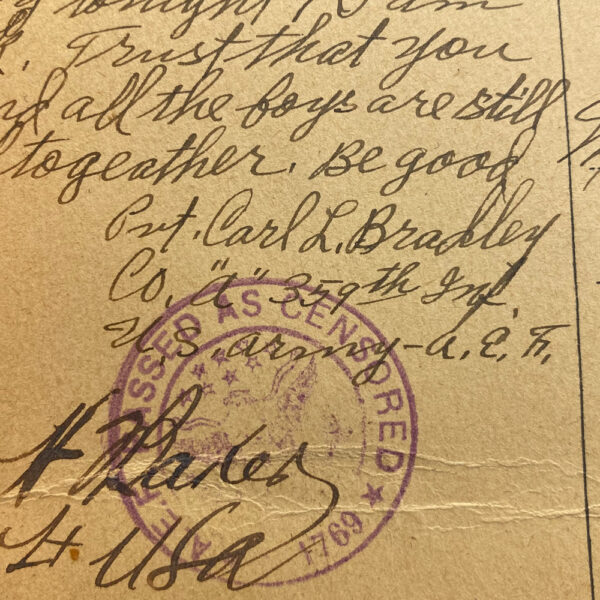 tonight
Trust that you
all the boys are still
togeather. Be good
Pvt. Carl L. Bradley
Co. "A" 359th Inf.
U.S. army - a. E. F.
A.E.F. PASSED AS CENSORED
1769
USA